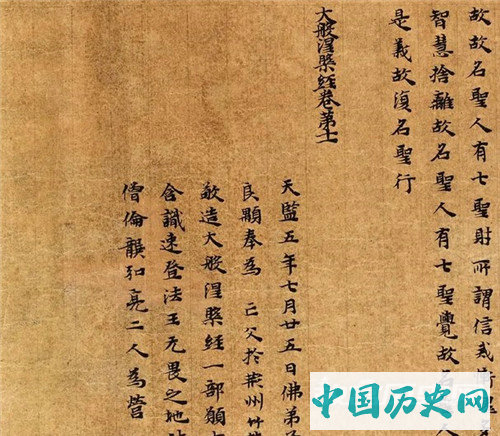 故故名聖人有七聖財所謂信戒
智慧捨離故名聖人有七聖覺故名
是義故復名聖行
大般涅槃經卷第十一
天監五年七月廿五日佛弟子
良顒奉為 亡父於荊州竹
敬造大般涅槃經一部願
含識速登法王无畏之地
僧倫龔和亮二人為營
中国历史网